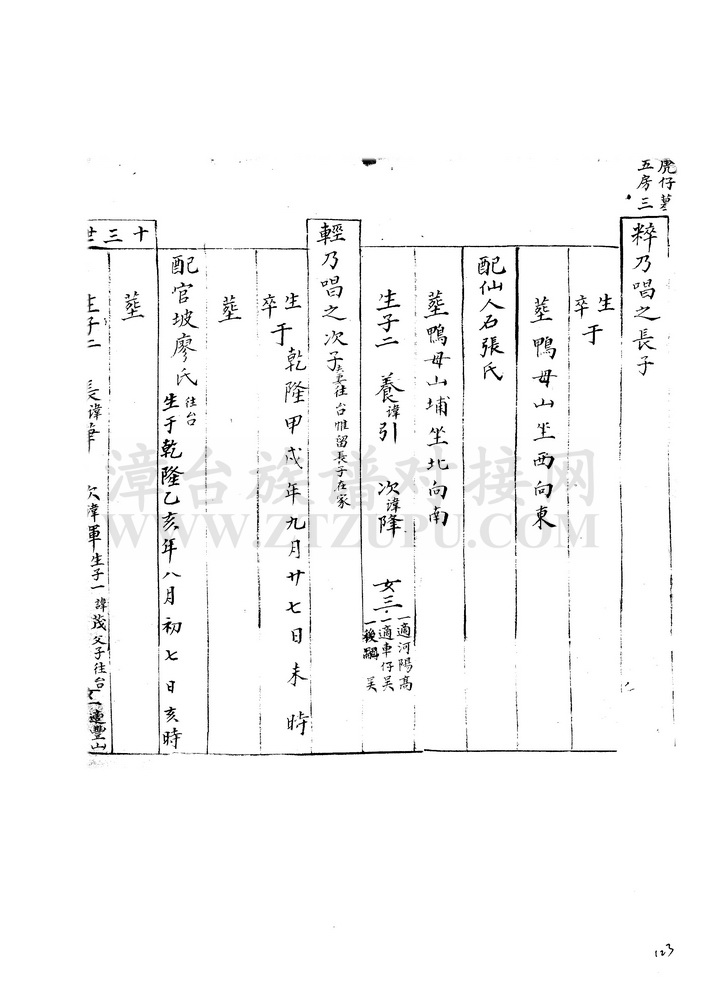 虎仔墓
五房三
粹乃唱之長子
生
卒于
葬鴨母山坐西向東
配仙人石張氏
葬鴨母山埔坐北向南
生子二 養諱引 次諱降 女三
一適河陽高
一適車仔吴
一後 吴
輕乃唱之次子夫妻往台惟留長子在家
生
卒于 乾隆甲戌年九月廿七日未時
葬
配官坡廖氏往台 生于乾隆乙亥年八月初七日亥時
葬
十三世
生子二 長諱肇 次諱軍生子一諱茂父子往台 豐山
漳台族谱对接网
WWW.ZTZUPU.COM
123